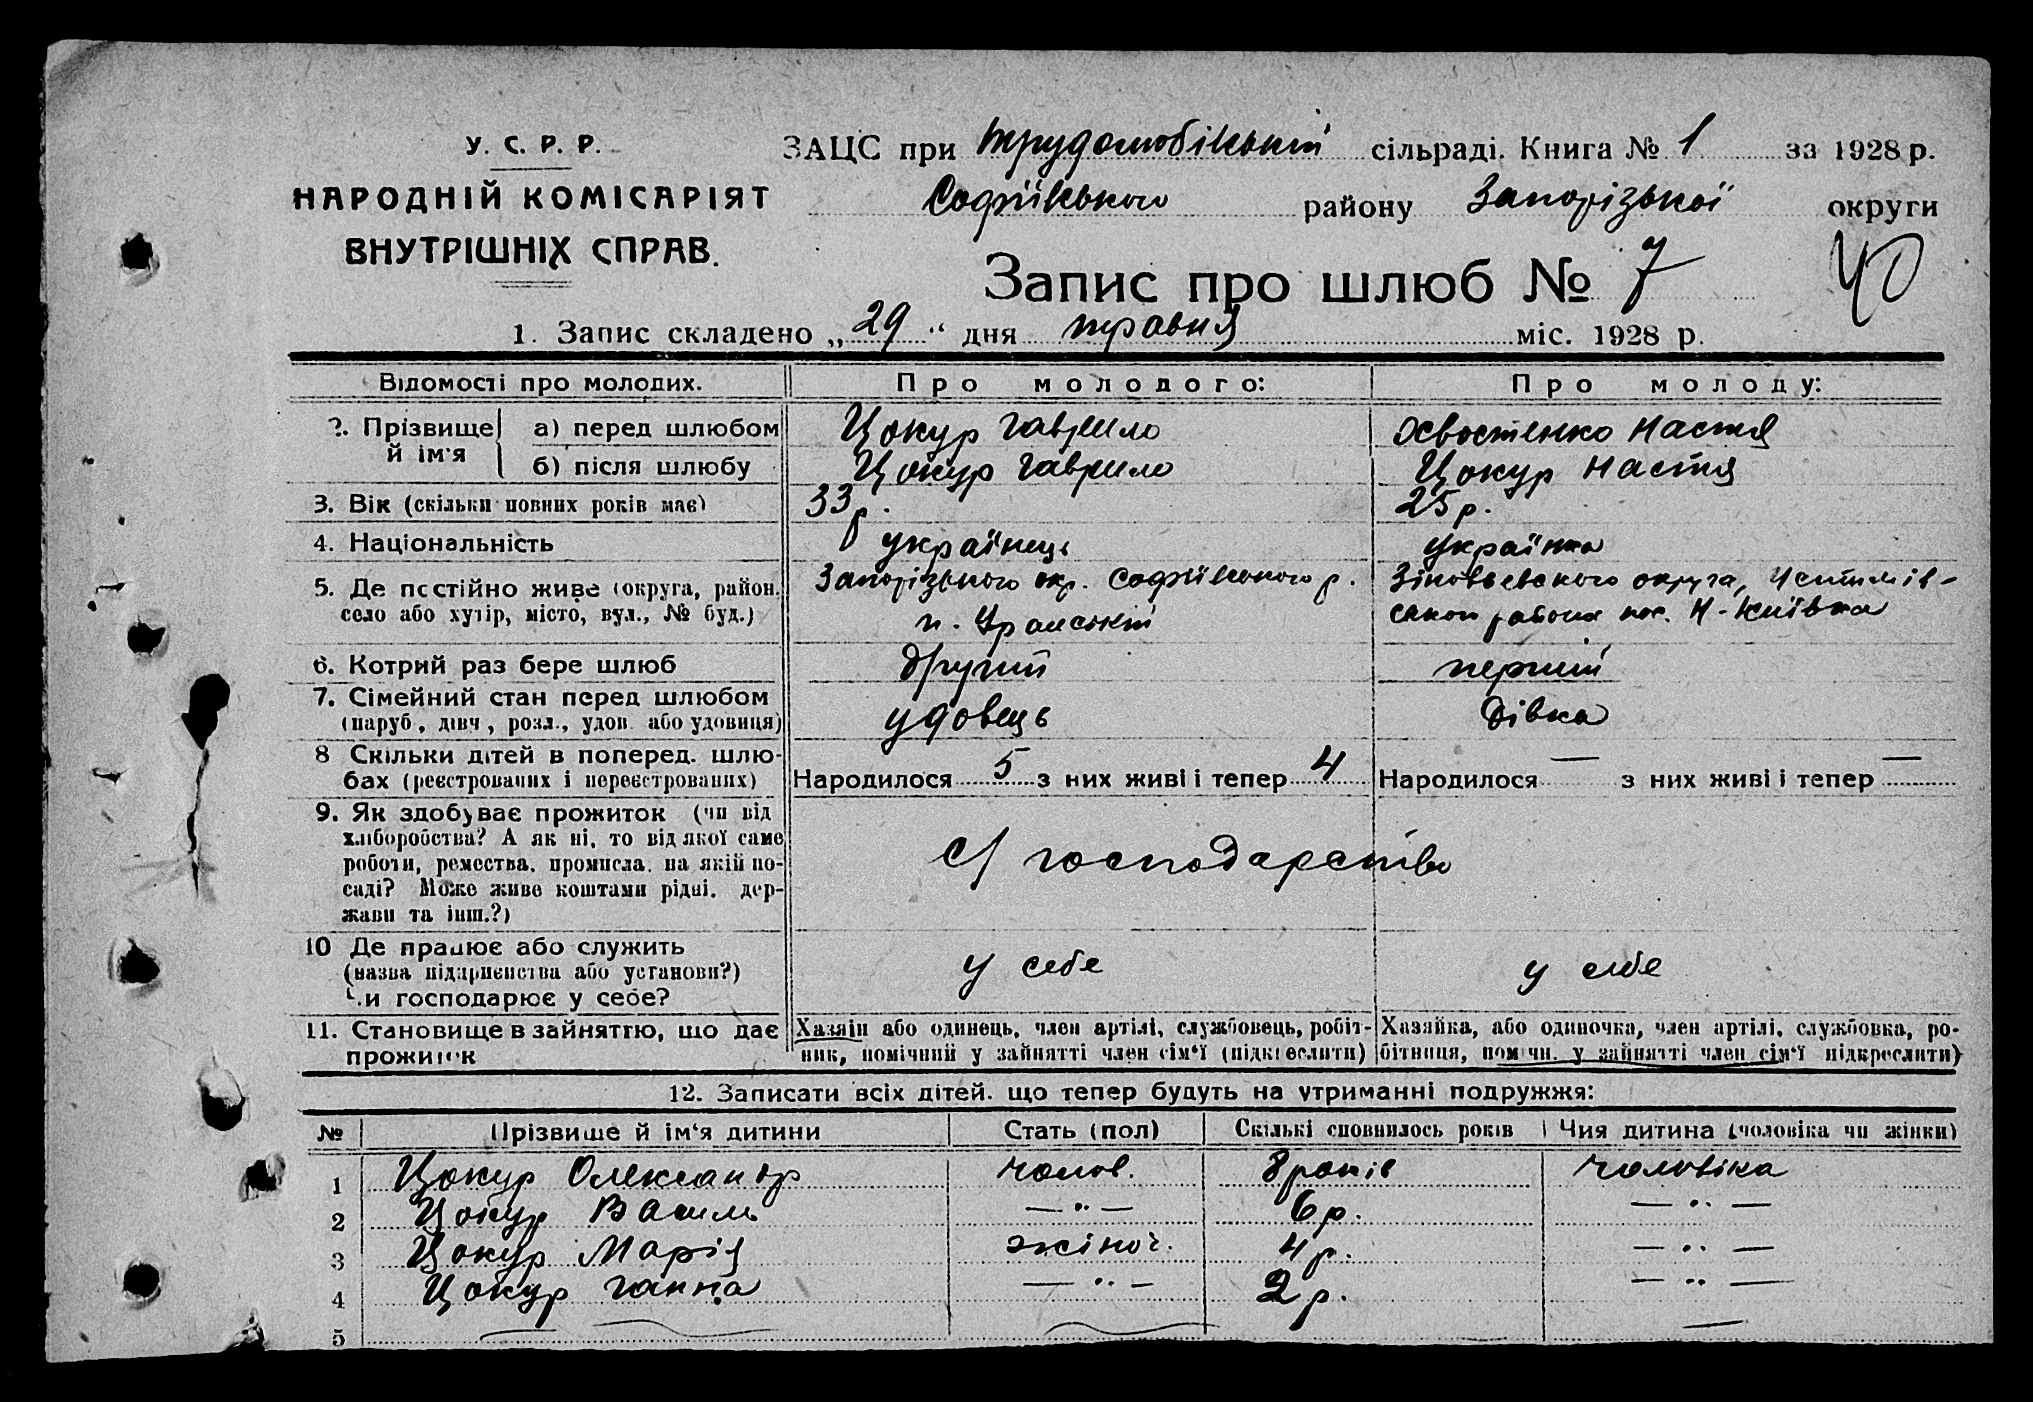 У. С. Р. Р.
НАРОДНІЙ КОМІСАРІЯТ
ВНУТРІШНІХ СПРАВ.
ЗАЦС при Трудолюбівській сільраді. Книга № 1 за 1928 р.
Софіївського району Запорізької округи
Запис про шлюб № 7
40
1. Запис складено „29“ дня травня міс. 1928 р.
Відомості про молодих. Про молодого: Про молоду:
2. Прізвище й ім'я
а) перед шлюбом Цокур Гаврило Хвостенко Настя
б) після шлюбу Цокур Гаврило Цокур Настя
3. Вік (скільки повних років має) 33 р. 25 р.
4. Національність українець українка
5. Де постійно живе (округа, район, Запорізького окр. Софіївського р. Зіновьевского округа,
село або хутір, місто, вул., № буд.) района пос. Н-Київка
6. Котрий раз бере шлюб другий перший
7. Сімейний стан перед шлюбом удовець дівка
(паруб., дівч., розл., удов. або удовиця)
8 Скільки дітей в поперед. шлю-
бах (реєстрованих і нереєстрованих) Народилося 5 з них живі і тепер 4 Народилося — з них живі і тепер —
9. Як здобуває прожиток (чи від
хліборобства? А як ні, то від якої саме
роботи, ремества, промисла, на якій по-
саді? Може живе коштами рідні, дер-
жави та інш.?)
с/господарство
10 Де працює або служить
(назва підприємства або установи?) у себе у себе
Чи господарює у себе?
11. Становище в зайняттю, що дає
прожиток
Хазяїн або одинець, член артілі, службовець, робіт-
ник, помічний у зайнятті член сім'ї (підкреслити)
Хазяйка, або одиночка, член артілі, службовка, ро-
бітниця, помічн. у зайнятті член сім'ї підкреслити)
12. Записати всіх дітей, що тепер будуть на утриманні подружжя:
№ Прізвище й ім'я дитини Стать (пол) Скількі сповнилось років Чия дитина (чоловіка чи жінки)
1 Цокур Олександр чолов. 8 років чоловіка
2 Цокур Василь — „ — 6 р. — „ —
3 Цокур Марія жіноч. 4 р. — „ —
4 Цокур Ганна — „ — 2 р. — „ —
5 — — —